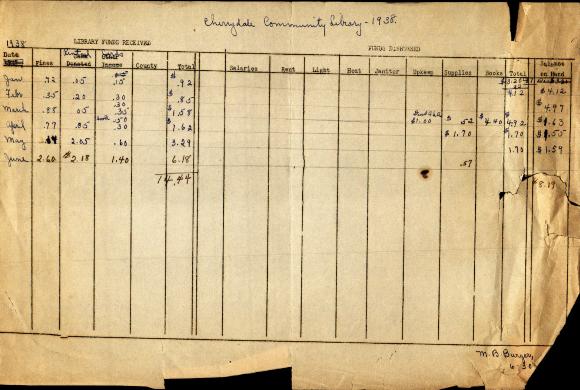 Cherrydale Community Library - 1938.
1938 LIBRARY FUNDS RECEIVED FUNDS DISBURSED
Date Fines Donated Income County Total Salaries Rent Light Heat Janitor Upkeep Supplies Books Total Balance on Hand
Jan .72 .05 .15 $ .92
Feb. .35 .20 .30 $ .85 .12 $4.12
March .88 .05 .30 .35 $ 1.58 $4.97
April .77 .85 .50 .30 $ 1.62 $1.00 $ .52 $4.40 $4.92 $1.63
May 2.05 .60 3.29 $ 1.70 $1.70 $1.55
June 2.60 $2.18 1.40 6.18 .57 1.70 $1.59
14.44 $8.19
M. B. Burger,
6-30